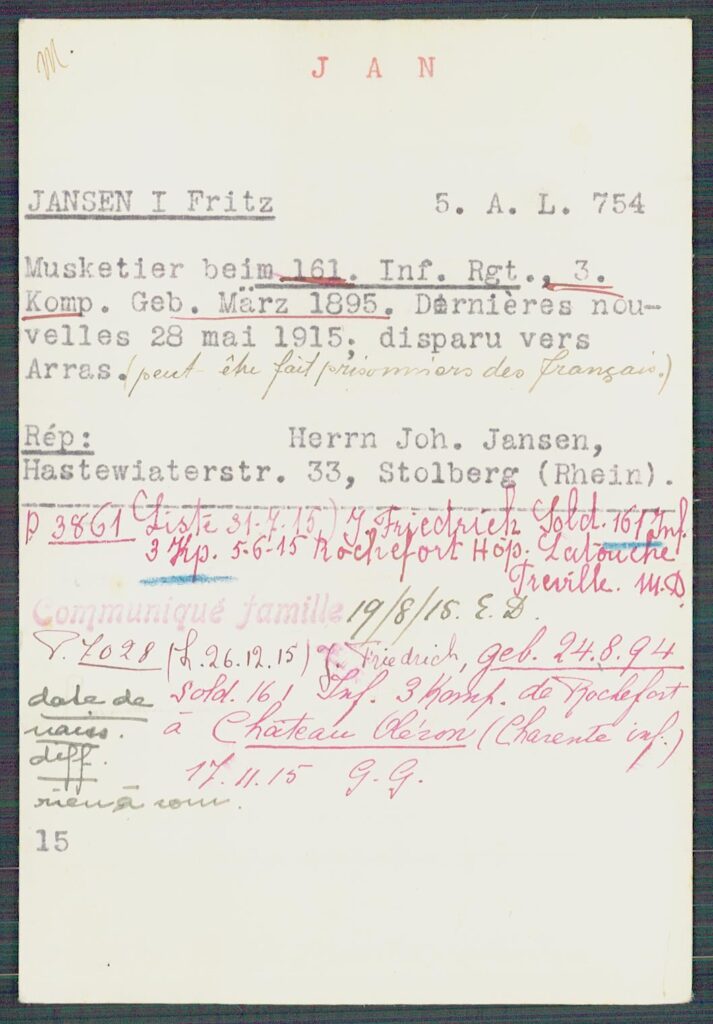 M.
J A N
JANSEN I Fritz 5. A. L. 754
Musketier beim 161. Inf. Rgt., 3.
Komp. Geb. März 1895. Dernières nou-
velles 28 mai 1915; disparu vers
Arras. (peut-être fait prisonniers des français.)
Rép: Herrn Joh. Jansen,
Hastewiaterstr. 33, Stolberg (Rhein).
P 3861 (Liste 31-7.15.) J. Friedrich Sold. 161 Inf.
3 Kp. 5-6-15 Rochefort Hôp. Latouche
Treville. M.D.
Communiqué famille 19/8/15. E.D.
P. 7028 (L. 26.12.15) J. Friedrich, geb. 24.8.94
sold. 161 Inf. 3 Komp. de Rochefort
à Château Oléron (Charente inf.)
17.11.15 G.G.
date de
naiss.
diff.
rien à com.
15